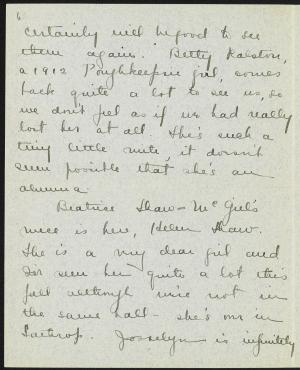 6
certainly will be good to see
them again. Betty Ralston,
a 1912 Poughkeepsie girl, comes
back quite a lot to see us, so
we don't feel as if we had really
lost her at all. She's such a
tiny little mite, it doesn't
seem possible that she's an
alumna.
Beatrice Shaw - McGill's
niece is here, Helen Shaw.
She is a very dear girl and
I've seen her quite a lot this
fall although we're not in
the same hall - she's over in
Lathrop. Josselyn is infinitely